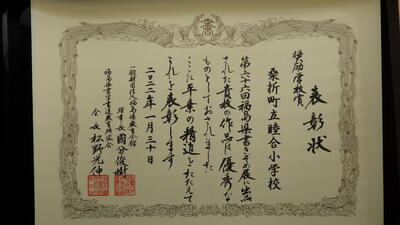 表彰状
奨励学校賞
桑折町立睦合小学校
第六十六回福島県書きぞめ展に出品
された貴校の作品は優秀な
ものとしてみとめられました
ここに平素の精進をたたえて
これを表彰します
二〇二二年一月二十日
一般財団法人福島県教育会館
理事長 國分俊樹
福島県書写書道教育研究会
会長 松野光伸